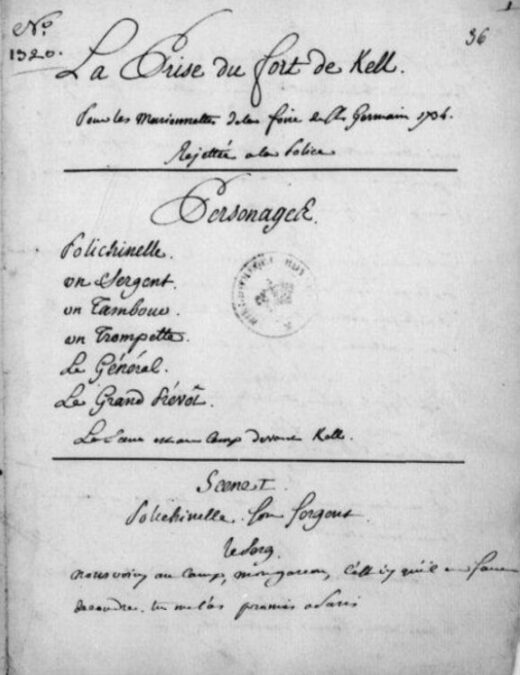 N.º
1320.
36
La Prise du fort de Kell.
Pour les Marionnettes de la foire de St Germain 1734.
Rejettée a la Police
Personages.
Polichinelle.
un Sergent.
un Tambour.
un Trompette.
Le Général.
Le Grand Prévôt.
La Scene est au Camp devant Kell.
Scene I
Polichinelle. Son Sergent.
le Serg.
nous voicy au Camp, mon garcon, c'est icy qu'il en faut
decoudre. tu me l'as promis a Paris